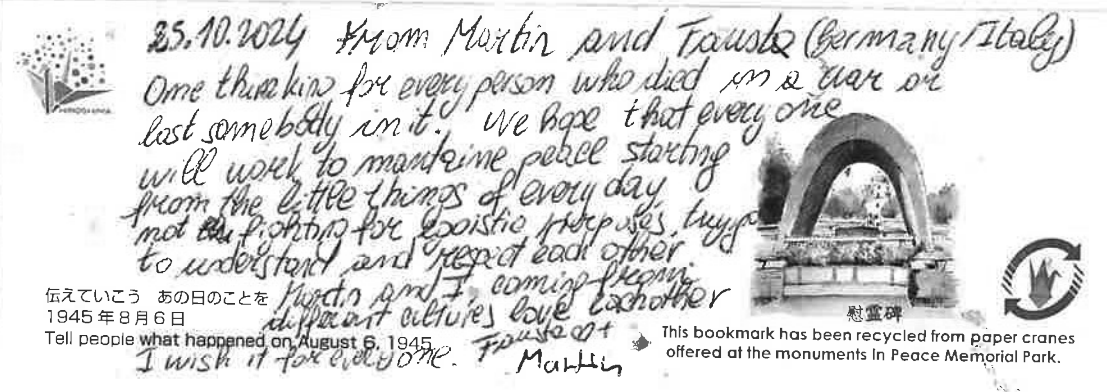 25.10.2024 From Martin and Fausta (Germany/Italy)
One thinking for every person who died in a war or
lost somebody in it. We hope that everyone
will work to mantaine peace starting
from the little things of every day,
not fighting for egoistic purposes, trying
to understand and respect each other.
Martin and I, coming from
different cultures love eachother
I wish it for everyone. Fausta et
Martin
HIROSHIMA
伝えていこう あの日のことを
1945年8月6日
Tell people what happened on August 6, 1945
慰霊碑
This bookmark has been recycled from paper cranes
offered at the monuments in Peace Memorial Park.